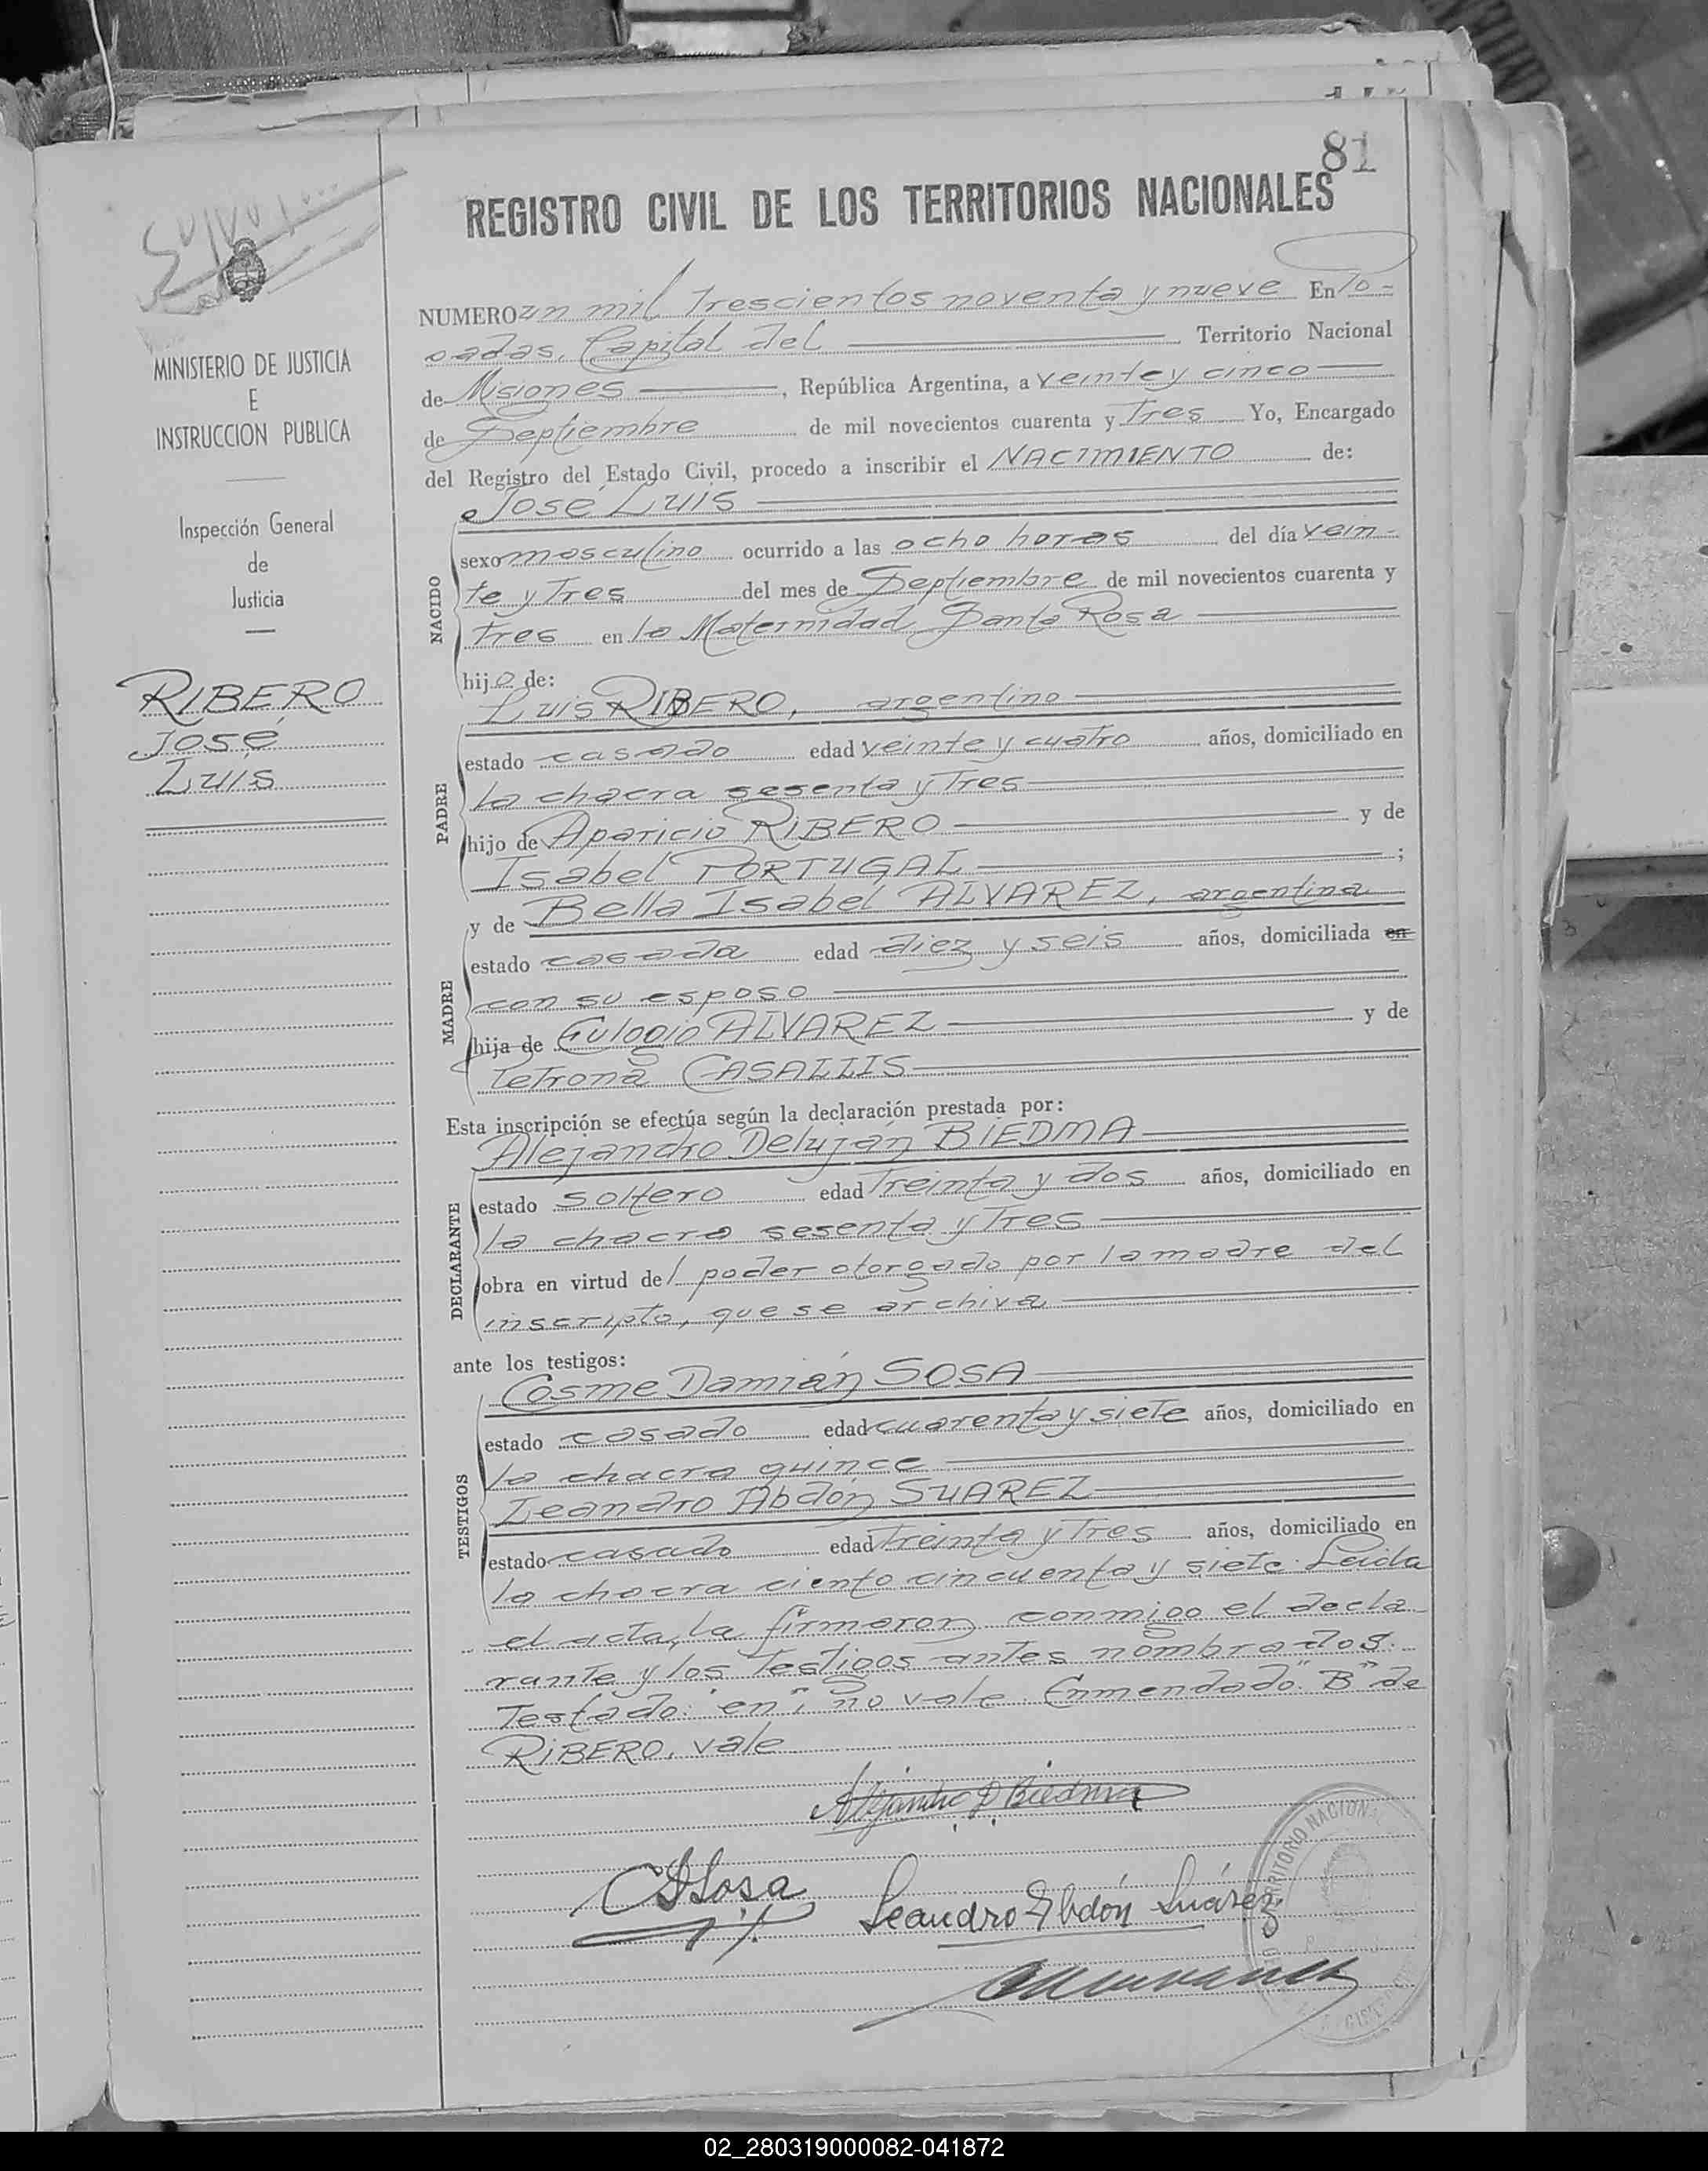 81
REGISTRO CIVIL DE LOS TERRITORIOS NACIONALES
MINISTERIO DE JUSTICIA
E
INSTRUCCION PUBLICA
Inspección General
de
Justicia
RIBERO
José
Luis
NUMERO un mil trescientos noventa y nueve En Po-
sadas, Capital del Territorio Nacional
de Misiones, República Argentina, a veinte y cinco
de Septiembre de mil novecientos cuarenta y tres Yo, Encargado
del Registro del Estado Civil, procedo a inscribir el NACIMIENTO de:
José Luis
NACIDO
sexo masculino ocurrido a las ocho horas del día vein-
te y tres del mes de Septiembre de mil novecientos cuarenta y
tres en la Maternidad Santa Rosa
hijo de:
Luis RIBERO, argentino
PADRE
estado casado edad veinte y cuatro años, domiciliado en
la chacra sesenta y tres
hijo de Aparicio RIBERO y de
Isabel PORTUGAL ;
y de Bella Isabel ALVAREZ, argentina
MADRE
estado casada edad diez y seis años, domiciliada en
con su esposo
hija de Eulogio ALVAREZ y de
Petrona CASALLIS
Esta inscripción se efectúa según la declaración prestada por:
Alejandro Deluján BIEDMA
DECLARANTE
estado soltero edad treinta y dos años, domiciliado en
la chacra sesenta y tres
obra en virtud del poder otorgado por la madre del
inscripto, que se archiva
ante los testigos:
Cosme Damián SOSA
TESTIGOS
estado casado edad cuarenta y siete años, domiciliado en
la chacra quince
Leandro Abdón SUAREZ
estado casado edad treinta y tres años, domiciliado en
la chacra ciento cincuenta y siete. Leida
el acta, la firmaron conmigo el decla
rante y los testigos antes nombrados.
Testado: "en": no vale. Enmendado: "B" de
RIBERO, vale
Alejandro D Biedma
CDSosa
Leandro Abdón Suárez
TERRITORIO NACIONAL
02_280319000082-041872